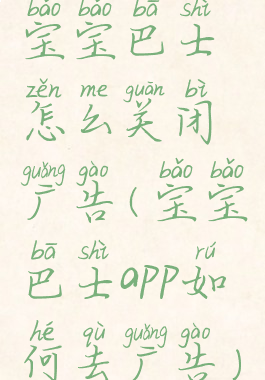 bǎo bǎo bā shì
宝宝巴士
zěn me guān bì
怎么关闭
guǎng gào bǎo bǎo
广告(宝宝
bā shì rú
巴士app如
hé qù guǎng gào
何去广告)